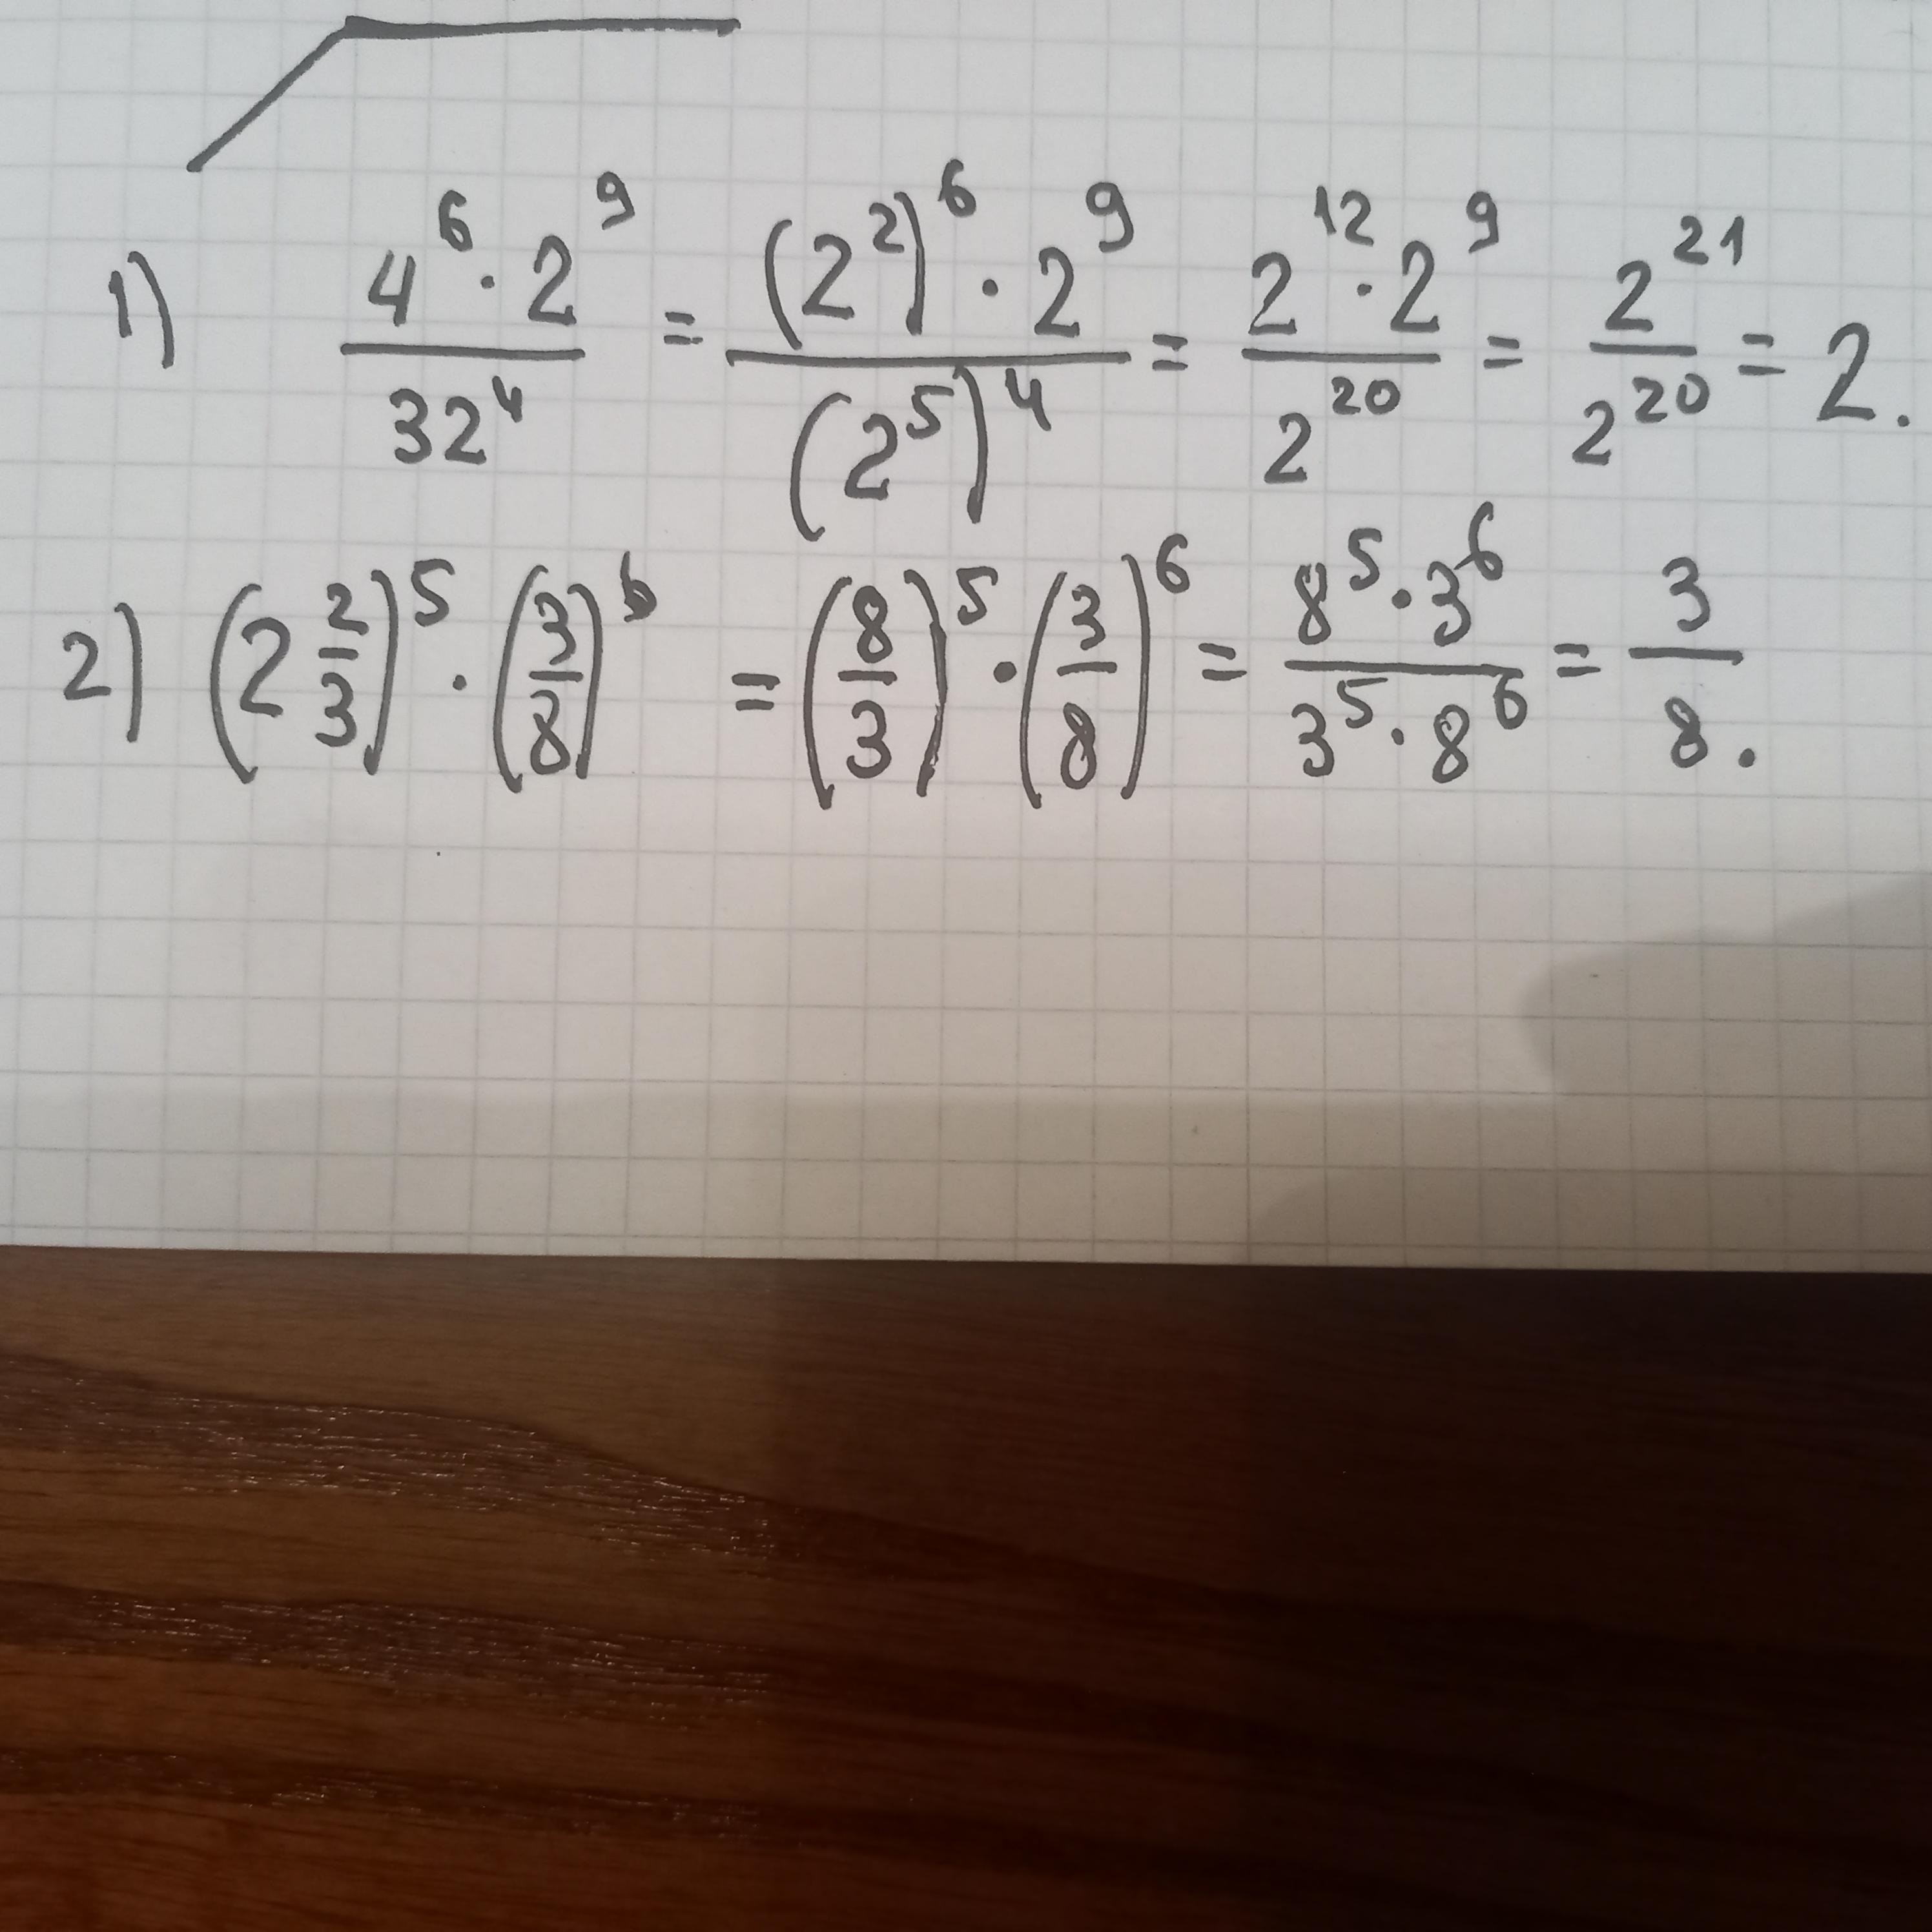 1) \frac{4^6 · 2^9}{32^4} = \frac{(2^2)^6 · 2^9}{(2^5)^4} = \frac{2^{12} · 2^9}{2^{20}} = \frac{2^{21}}{2^{20}} = 2.
2) (2\frac{2}{3})^5 · (\frac{3}{8})^6 = (\frac{8}{3})^5 · (\frac{3}{8})^6 = \frac{8^5 · 3^6}{3^5 · 8^6} = \frac{3}{8}.